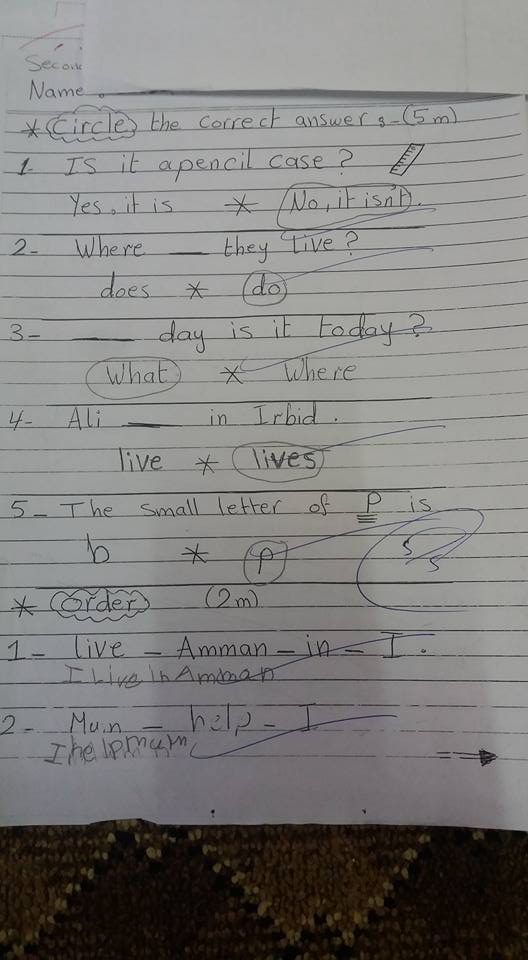 Secon
Name
* Circle the correct answer :- (5m)
1- Is it a pencil case ?
Yes, it is * No, it isn't.
2- Where ___ they live ?
does * do
3- ___ day is it today ?
What * Where
4- Ali ___ in Irbid .
live * lives
5- The small letter of P is
b * p
5
5
* Order (2m)
1- live - Amman - in - I .
I Live in Amman
2- Mum - help - I
I help mum